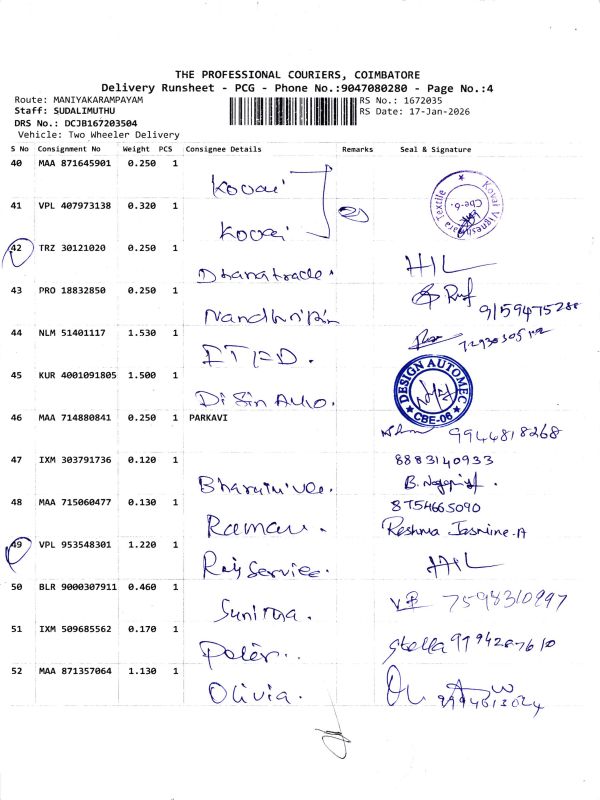 THE PROFESSIONAL COURIERS, COIMBATORE
Delivery Runsheet - PCG - Phone No.:9047080280 - Page No.:4
Route: MANIYAKARAMPAYAM
RS No.: 1672035
Staff: SUDALIMUTHU
RS Date: 17-Jan-2026
DRS No.: DCJB167203504
Vehicle: Two Wheeler Delivery
S No Consignment No Weight PCS Consignee Details Remarks Seal & Signature
40 MAA 871645901 0.250 1
Kovai
Kovai Vigneshwara Textile Cbe-6.
41 VPL 407973138 0.320 1
Kovai
42 TRZ 30121020 0.250 1
Dhanatrade. HIL
43 PRO 18832850 0.250 1
44 NLM 51401117 1.530 1
45 KUR 4001091805 1.500 1
DESIGN AUTOMEC CBE-06
46 MAA 714880841 0.250 1 PARKAVI
9944818268
47 IXM 303791736 0.120 1
8883140933
48 MAA 715060477 0.130 1
8754665090
Raman. Reshma Jasmine.A
49 VPL 953548301 1.220 1
Raj Service. HIL
50 BLR 9000307911 0.460 1
7598310997
51 IXM 509685562 0.170 1
Peter.. Stella 9794287610
52 MAA 871357064 1.130 1
Olivia.